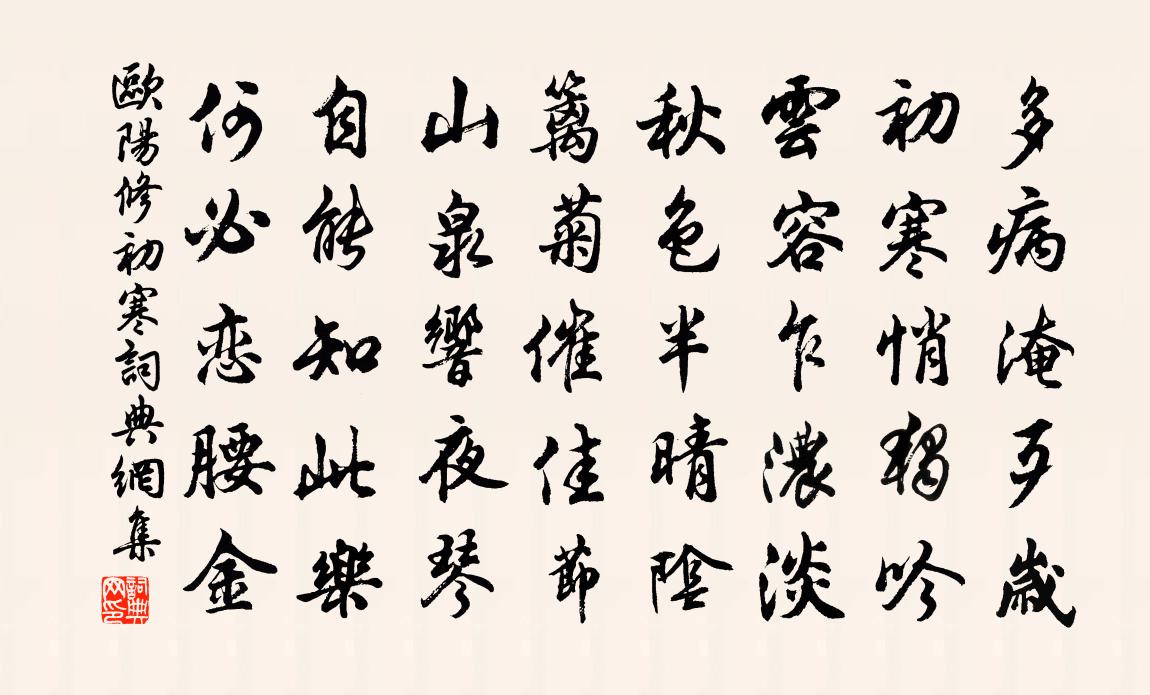 多病淹歲
初寒悄獨吟
雲容乍濃淡
秋色半晴陰
籬菊催佳節
山泉響夜琴
自能知此樂
何必恋腰金
歐陽修初寒詞典網集
詞典網印